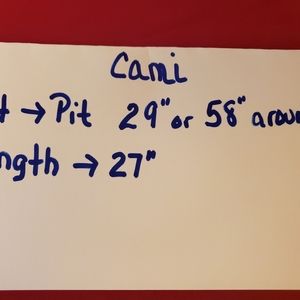 Cami
t → Pit 29" or 58" arou
ngth → 27"